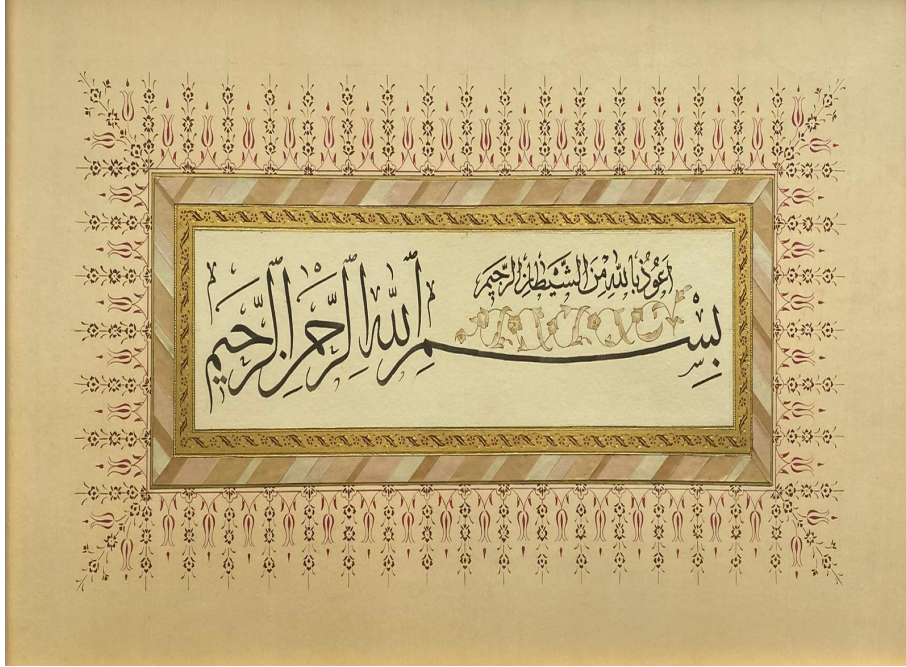 اَعُوذُ بِاللهِ مِنَ الشَّيْطَانِ الرَّجِيمِ
بِسْمِ اللهِ الرَّحْمٰنِ الرَّحِيمِ